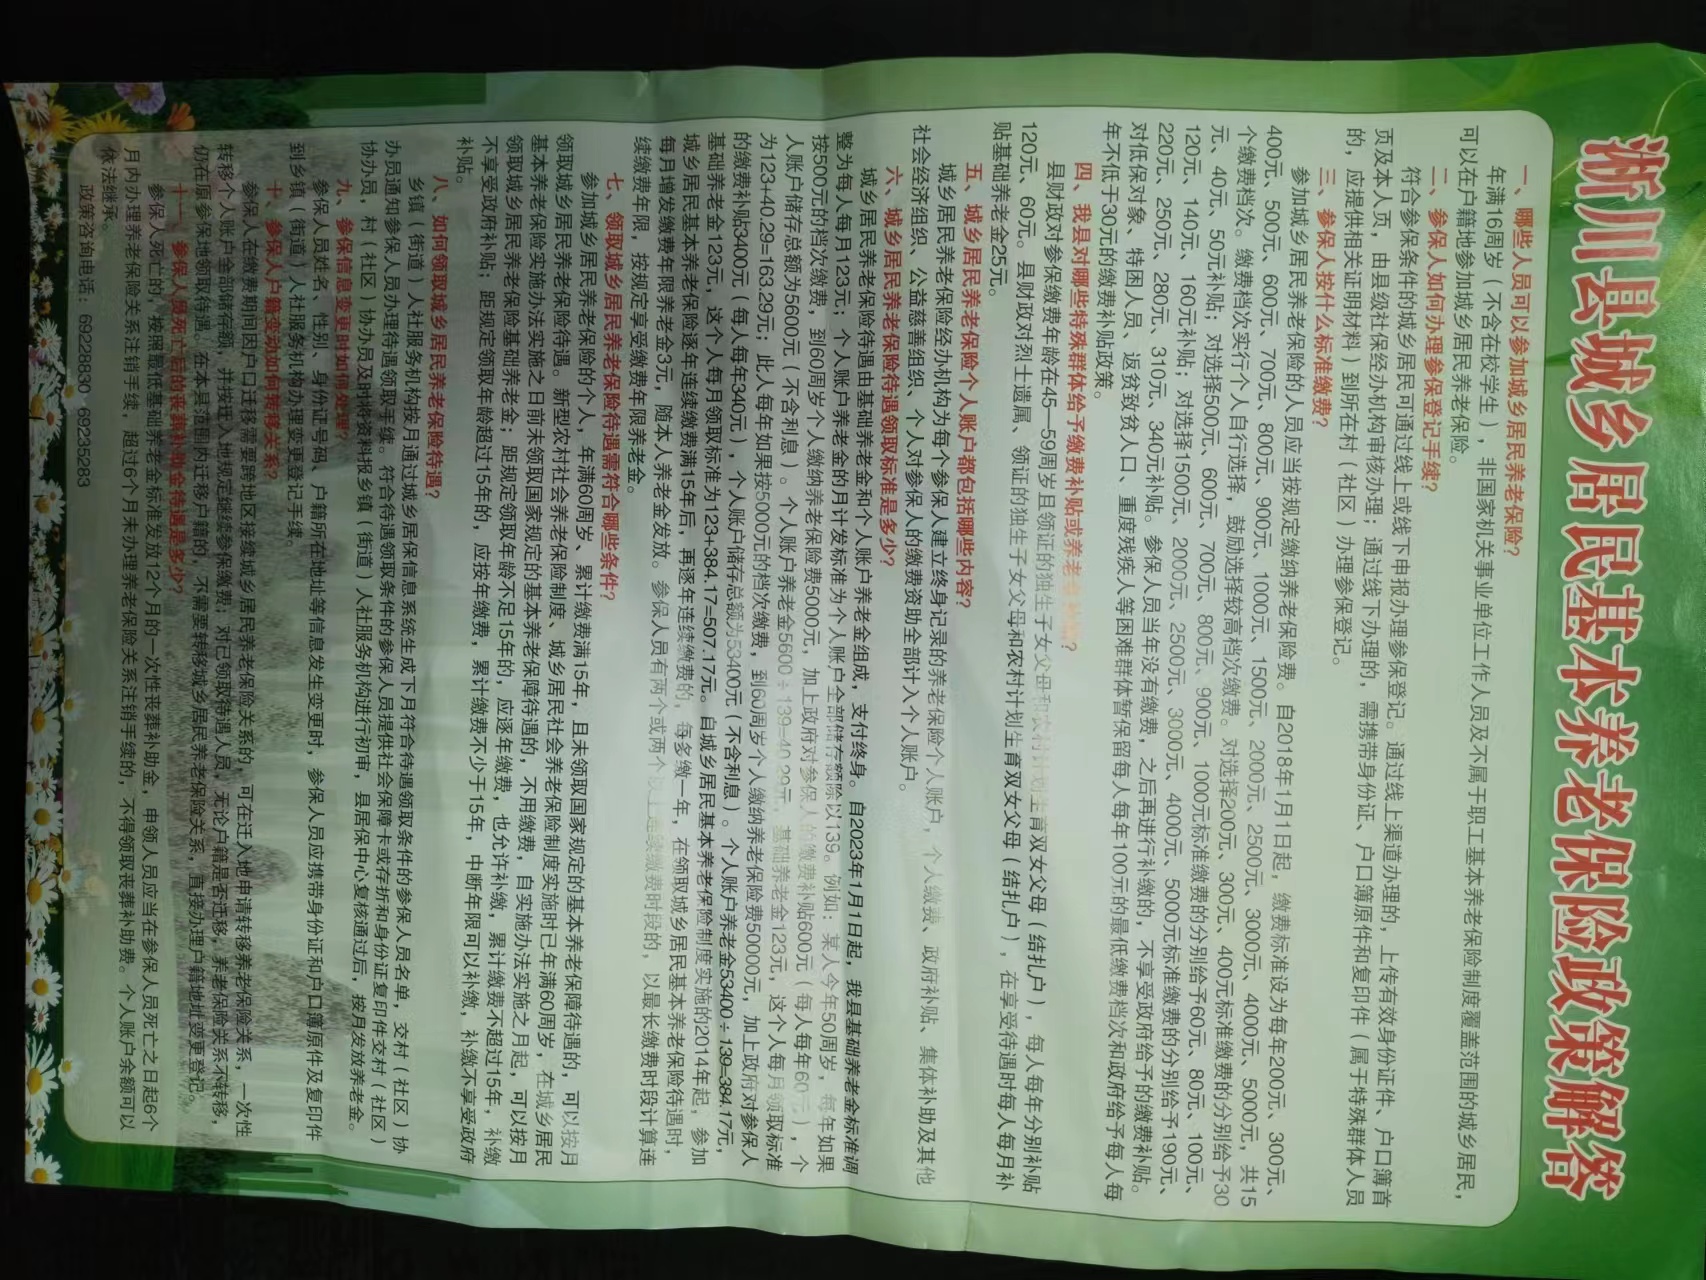 淅川县城乡居民基本养老保险政策解答
一、哪些人员可以参加城乡居民养老保险?
年满16周岁（不含在校学生），非国家机关事业单位工作人员及不属于职工基本养老保险制度覆盖范围的城乡居民，
可以在户籍地参加城乡居民养老保险。
二、参保人如何办理参保登记手续?
符合参保条件的城乡居民可通过线上或线下申报办理参保登记。通过线上渠道办理的，上传有效身份证件、户口簿首
页及本人页，由县级社保经办机构审核办理；通过线下办理的，需携带身份证、户口簿原件和复印件（属于特殊群体人员
的，应提供相关证明材料）到所在村（社区）办理参保登记。
三、参保人按什么标准缴费?
参加城乡居民养老保险的人员应当按规定缴纳养老保险费。自2018年1月1日起，缴费标准设为每年200元、300元、
400元、500元、600元、700元、800元、900元、1000元、1500元、2000元、2500元、3000元、4000元、5000元，共15
个缴费档次。缴费档次实行个人自行选择，鼓励选择较高档次缴费。对选择200元、300元、400元标准缴费的分别给予30
元、40元、50元补贴；对选择500元、600元、700元、800元、900元、1000元标准缴费的分别给予60元、80元、100元、
120元、140元、160元补贴；对选择1500元、2000元、2500元、3000元、4000元、5000元标准缴费的分别给予190元、
220元、250元、280元、310元、340元补贴。参保人员当年没有缴费，之后再进行补缴的，不享受政府给予的缴费补贴。
对低保对象、特困人员、返贫致贫人口、重度残疾人等困难群体暂保留每人每年100元的最低缴费档次和政府给予每人每
年不低于30元的缴费补贴政策。
四、我县对哪些特殊群体给予缴费补贴或养老金补贴?
县财政对参保缴费年龄在45—59周岁且领证的独生子女父母和农村计划生育双女父母（结扎户），每人每年分别补贴
120元、60元。县财政对烈士遗属、领证的独生子女父母和农村计划生育双女父母（结扎户），在享受待遇时每人每月补
贴基础养老金25元。
五、城乡居民养老保险个人账户都包括哪些内容?
城乡居民养老保险经办机构为每个参保人建立终身记录的养老保险个人账户，个人缴费、政府补贴、集体补助及其他
社会经济组织、公益慈善组织、个人对参保人的缴费资助全部计入个人账户。
六、城乡居民养老保险待遇领取标准是多少?
城乡居民养老保险待遇由基础养老金和个人账户养老金组成，支付终身。自2023年1月1日起，我县基础养老金标准调
整为每人每月123元；个人账户养老金的月计发标准为个人账户全部储存额除以139。例如：某人今年50周岁，每年如果
按500元的档次缴费，到60周岁个人缴纳养老保险费5000元，加上政府对参保人的缴费补贴600元（每人每年60元），个
人账户储存总额为5600元（不含利息）。个人账户养老金5600÷139=40.29元，基础养老金123元，这个人每月领取标准
为123+40.29=163.29元；此人每年如果按5000元的档次缴费，到60周岁个人缴纳养老保险费50000元，加上政府对参保人
的缴费补贴3400元（每人每年340元），个人账户储存总额为53400元（不含利息）。个人账户养老金53400÷139=384.17元，
基础养老金123元，这个人每月领取标准为123+384.17=507.17元。自城乡居民基本养老保险制度实施的2014年起，参加
城乡居民基本养老保险逐年连续缴费满15年后，再逐年连续缴费的，每多缴一年，在领取城乡居民基本养老保险待遇时，
每月增发缴费年限养老金3元，随本人养老金发放。参保人员有两个或两个以上连续缴费时段的，以最长缴费时段计算连
续缴费年限，按规定享受缴费年限养老金。
七、领取城乡居民养老保险待遇需符合哪些条件?
参加城乡居民养老保险的个人，年满60周岁、累计缴费满15年，且未领取国家规定的基本养老保障待遇的，可以按月
领取城乡居民养老保险待遇。新型农村社会养老保险制度、城乡居民社会养老保险制度实施时已年满60周岁，在城乡居民
基本养老保险实施办法实施之日前未领取国家规定的基本养老保障待遇的，不用缴费，自实施办法实施之月起，可以按月
领取城乡居民养老保险基础养老金；距规定领取年龄不足15年的，应逐年缴费，也允许补缴，累计缴费不超过15年，补缴
不享受政府补贴；距规定领取年龄超过15年的，应按年缴费，累计缴费不少于15年，中断年限可以补缴，补缴不享受政府
补贴。
八、如何领取城乡居民养老保险待遇?
乡镇（街道）人社服务机构按月通过城乡居保信息系统生成下月符合待遇领取条件的参保人员名单，交村（社区）协
办员通知参保人员办理待遇领取手续。符合待遇领取条件的参保人员提供社会保障卡或存折和身份证复印件交村（社区）
协办员，村（社区）协办员及时将资料报乡镇（街道）人社服务机构进行初审，县居保中心复核通过后，按月发放养老金。
九、参保信息变更时如何处理?
参保人员姓名、性别、身份证号码、户籍所在地址等信息发生变更时，参保人员应携带身份证和户口簿原件及复印件
到乡镇（街道）人社服务机构办理变更登记手续。
十、参保人户籍变动如何转移关系?
参保人在缴费期间因户口迁移需要跨地区接续城乡居民养老保险关系的，可在迁入地申请转移养老保险关系，一次性
转移个人账户全部储存额，并按迁入地规定继续参保缴费，对已领取待遇人员，无论户籍是否迁移，养老保险关系不转移，
仍在原参保地领取待遇。在本县范围内迁移户籍的，不需要转移城乡居民养老保险关系，直接办理户籍地址变更登记。
十一、参保人员死亡后的丧葬补助金待遇是多少?
参保人死亡的，按照最低基础养老金标准发放12个月的一次性丧葬补助金，申领人员应当在参保人员死亡之日起6个
月内办理养老保险关系注销手续，超过6个月未办理养老保险关系注销手续的，不得领取丧葬补助费。个人账户余额可以
依法继承。
政策咨询电话：69228830 69235283